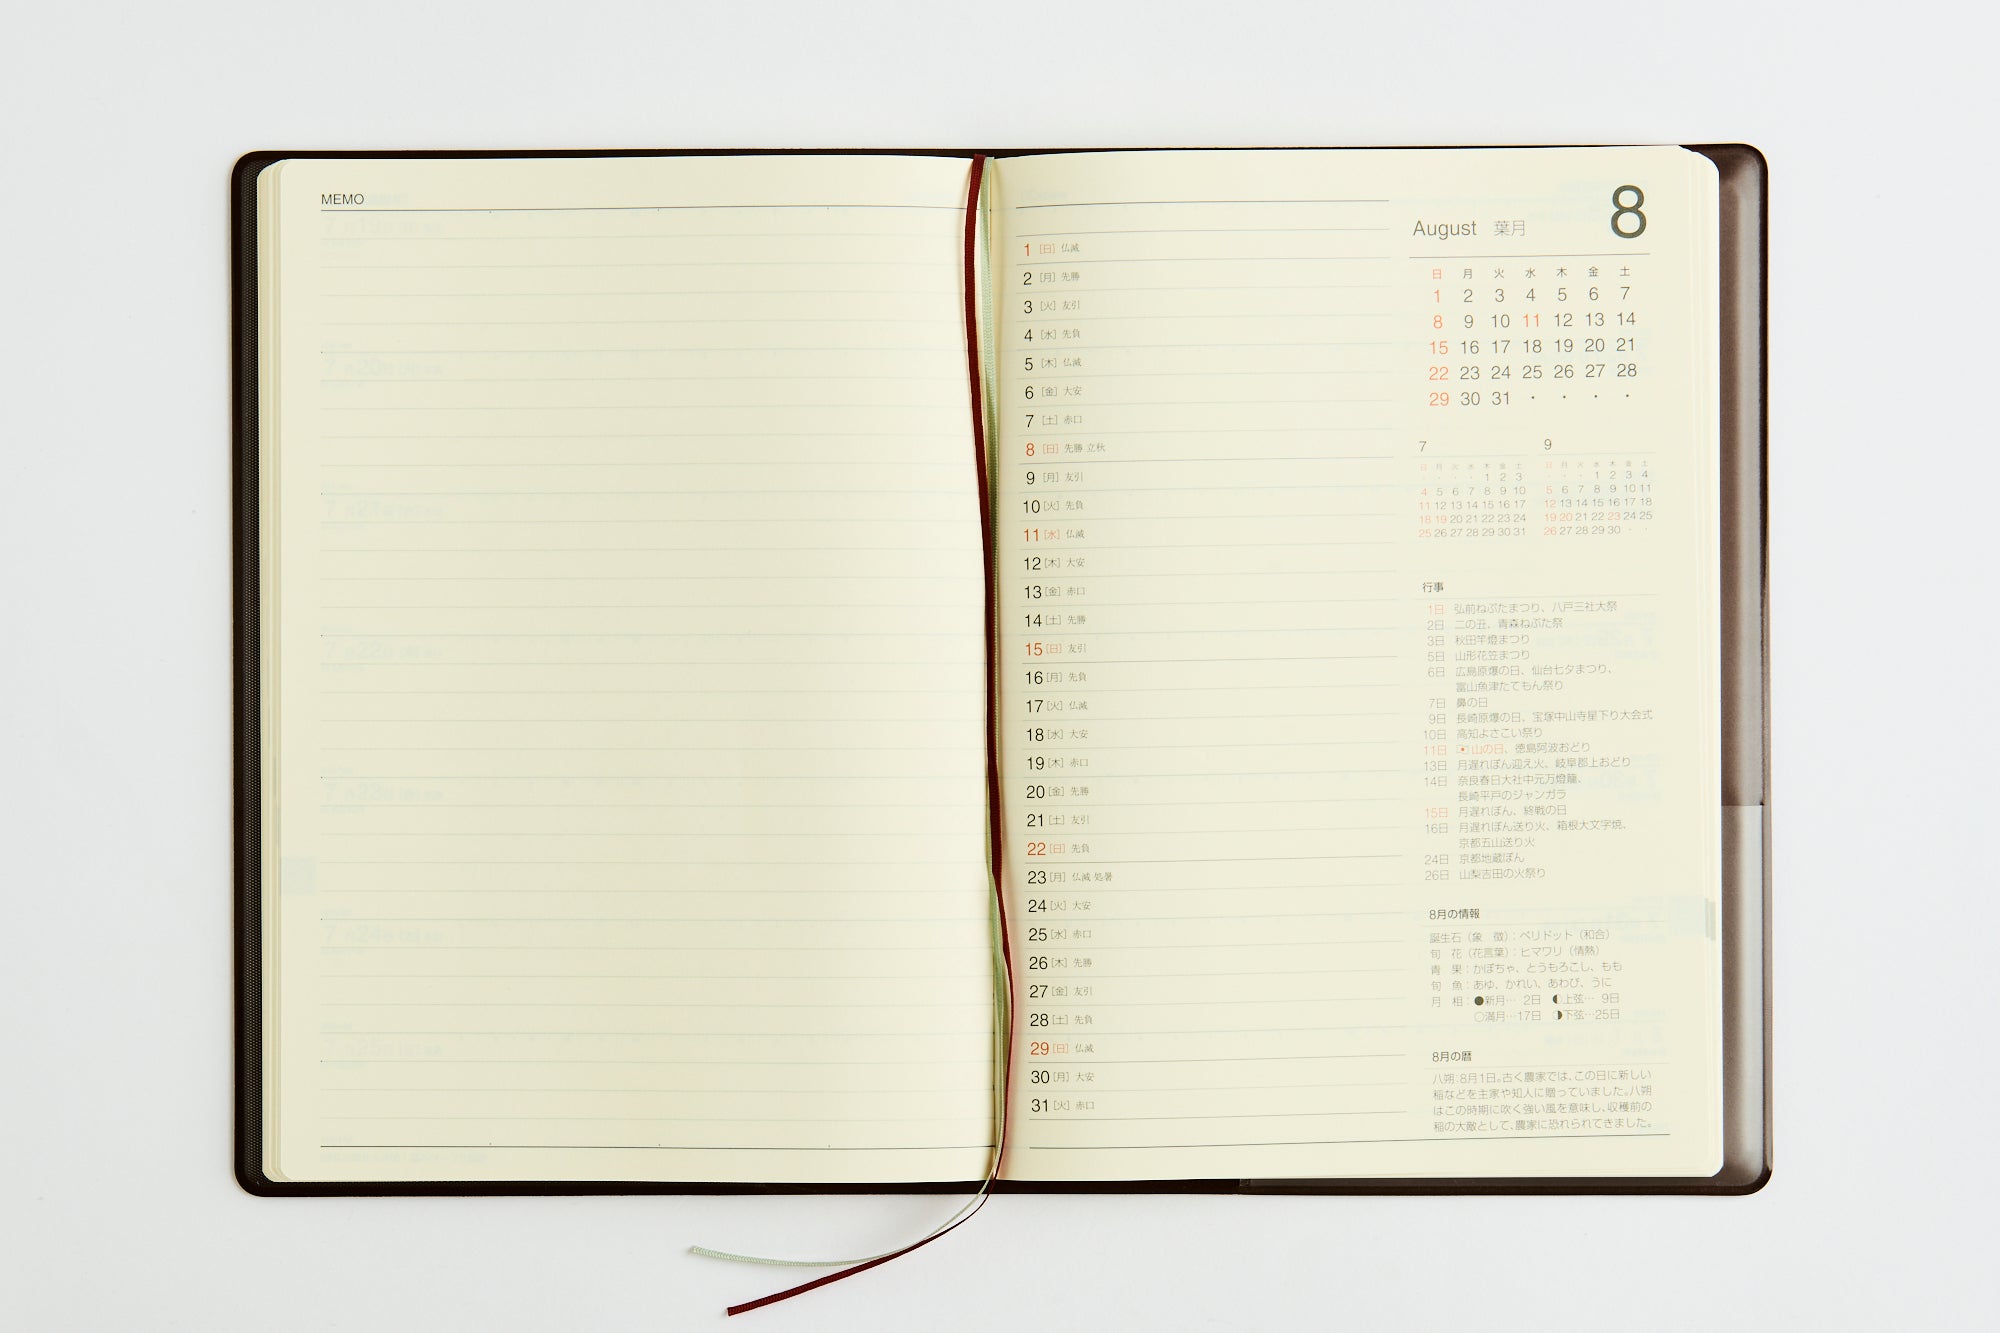 MEMO
1 [日] 仏滅
2 [月] 先勝
3 [火] 友引
4 [水] 先負
5 [木] 仏滅
6 [金] 大安
7 [土] 赤口
8 [日] 先勝 立秋
9 [月] 友引
10 [火] 先負
11 [水] 仏滅
12 [木] 大安
13 [金] 赤口
14 [土] 先勝
15 [日] 友引
16 [月] 先負
17 [火] 仏滅
18 [水] 大安
19 [木] 赤口
20 [金] 先勝
21 [土] 友引
22 [日] 先負
23 [月] 仏滅 処暑
24 [火] 大安
25 [水] 赤口
26 [木] 先勝
27 [金] 友引
28 [土] 先負
29 [日] 仏滅
30 [月] 大安
31 [火] 赤口
August 葉月 8
日 月 火 水 木 金 土
1 2 3 4 5 6 7
8 9 10 11 12 13 14
15 16 17 18 19 20 21
22 23 24 25 26 27 28
29 30 31 ・ ・ ・ ・
7
日 月 火 水 木 金 土
・ ・ ・ ・ 1 2 3
4 5 6 7 8 9 10
11 12 13 14 15 16 17
18 19 20 21 22 23 24
25 26 27 28 29 30 31
9
日 月 火 水 木 金 土
・ ・ ・ 1 2 3 4
5 6 7 8 9 10 11
12 13 14 15 16 17 18
19 20 21 22 23 24 25
26 27 28 29 30 ・ ・
行事
1日 弘前ねぷたまつり、八戸三社大祭
2日 二の丑、青森ねぶた祭
3日 秋田竿燈まつり
5日 山形花笠まつり
6日 広島原爆の日、仙台七夕まつり、
富山魚津たてもん祭り
7日 鼻の日
9日 長崎原爆の日、宝塚中山寺星下り大会式
10日 高知よさこい祭り
11日 山の日、徳島阿波おどり
13日 月遅れぼん迎え火、岐阜郡上おどり
14日 奈良春日大社中元万燈籠、
長崎平戸のジャンガラ
15日 月遅れぼん、終戦の日
16日 月遅れぼん送り火、箱根大文字焼、
京都五山送り火
24日 京都地蔵ぼん
26日 山梨吉田の火祭り
8月の情報
誕生石（象 徴）：ペリドット（和合）
旬 花（花言葉）：ヒマワリ（情熱）
青 果：かぼちゃ、とうもろこし、もも
旬 魚：あゆ、かれい、あわび、うに
月 相：●新月… 2日 ◐上弦… 9日
○満月…17日 ◑下弦…25日
8月の暦
八朔：8月1日。古く農家では、この日に新しい
稲などを主家や知人に贈っていました。八朔
はこの時期に吹く強い風を意味し、収穫前の
稲の大敵として、農家に恐れられてきました。